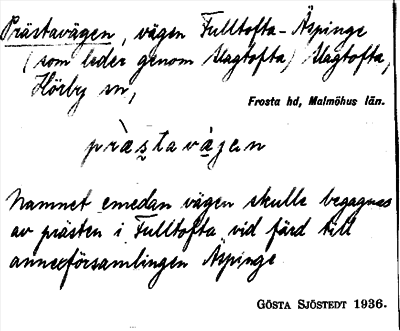 Prästavägen, vägen Fulltofta - Äspinge
(som leder genom Slagtofta) Slagtofta,
Hörby sn,
Frosta hd, Malmöhus län.
prästavägen
Namnet emedan vägen skulle begagnas
av prästen i Fulltofta vid färd till
annexförsamlingen Äspinge
GÖSTA SJÖSTEDT 1936.